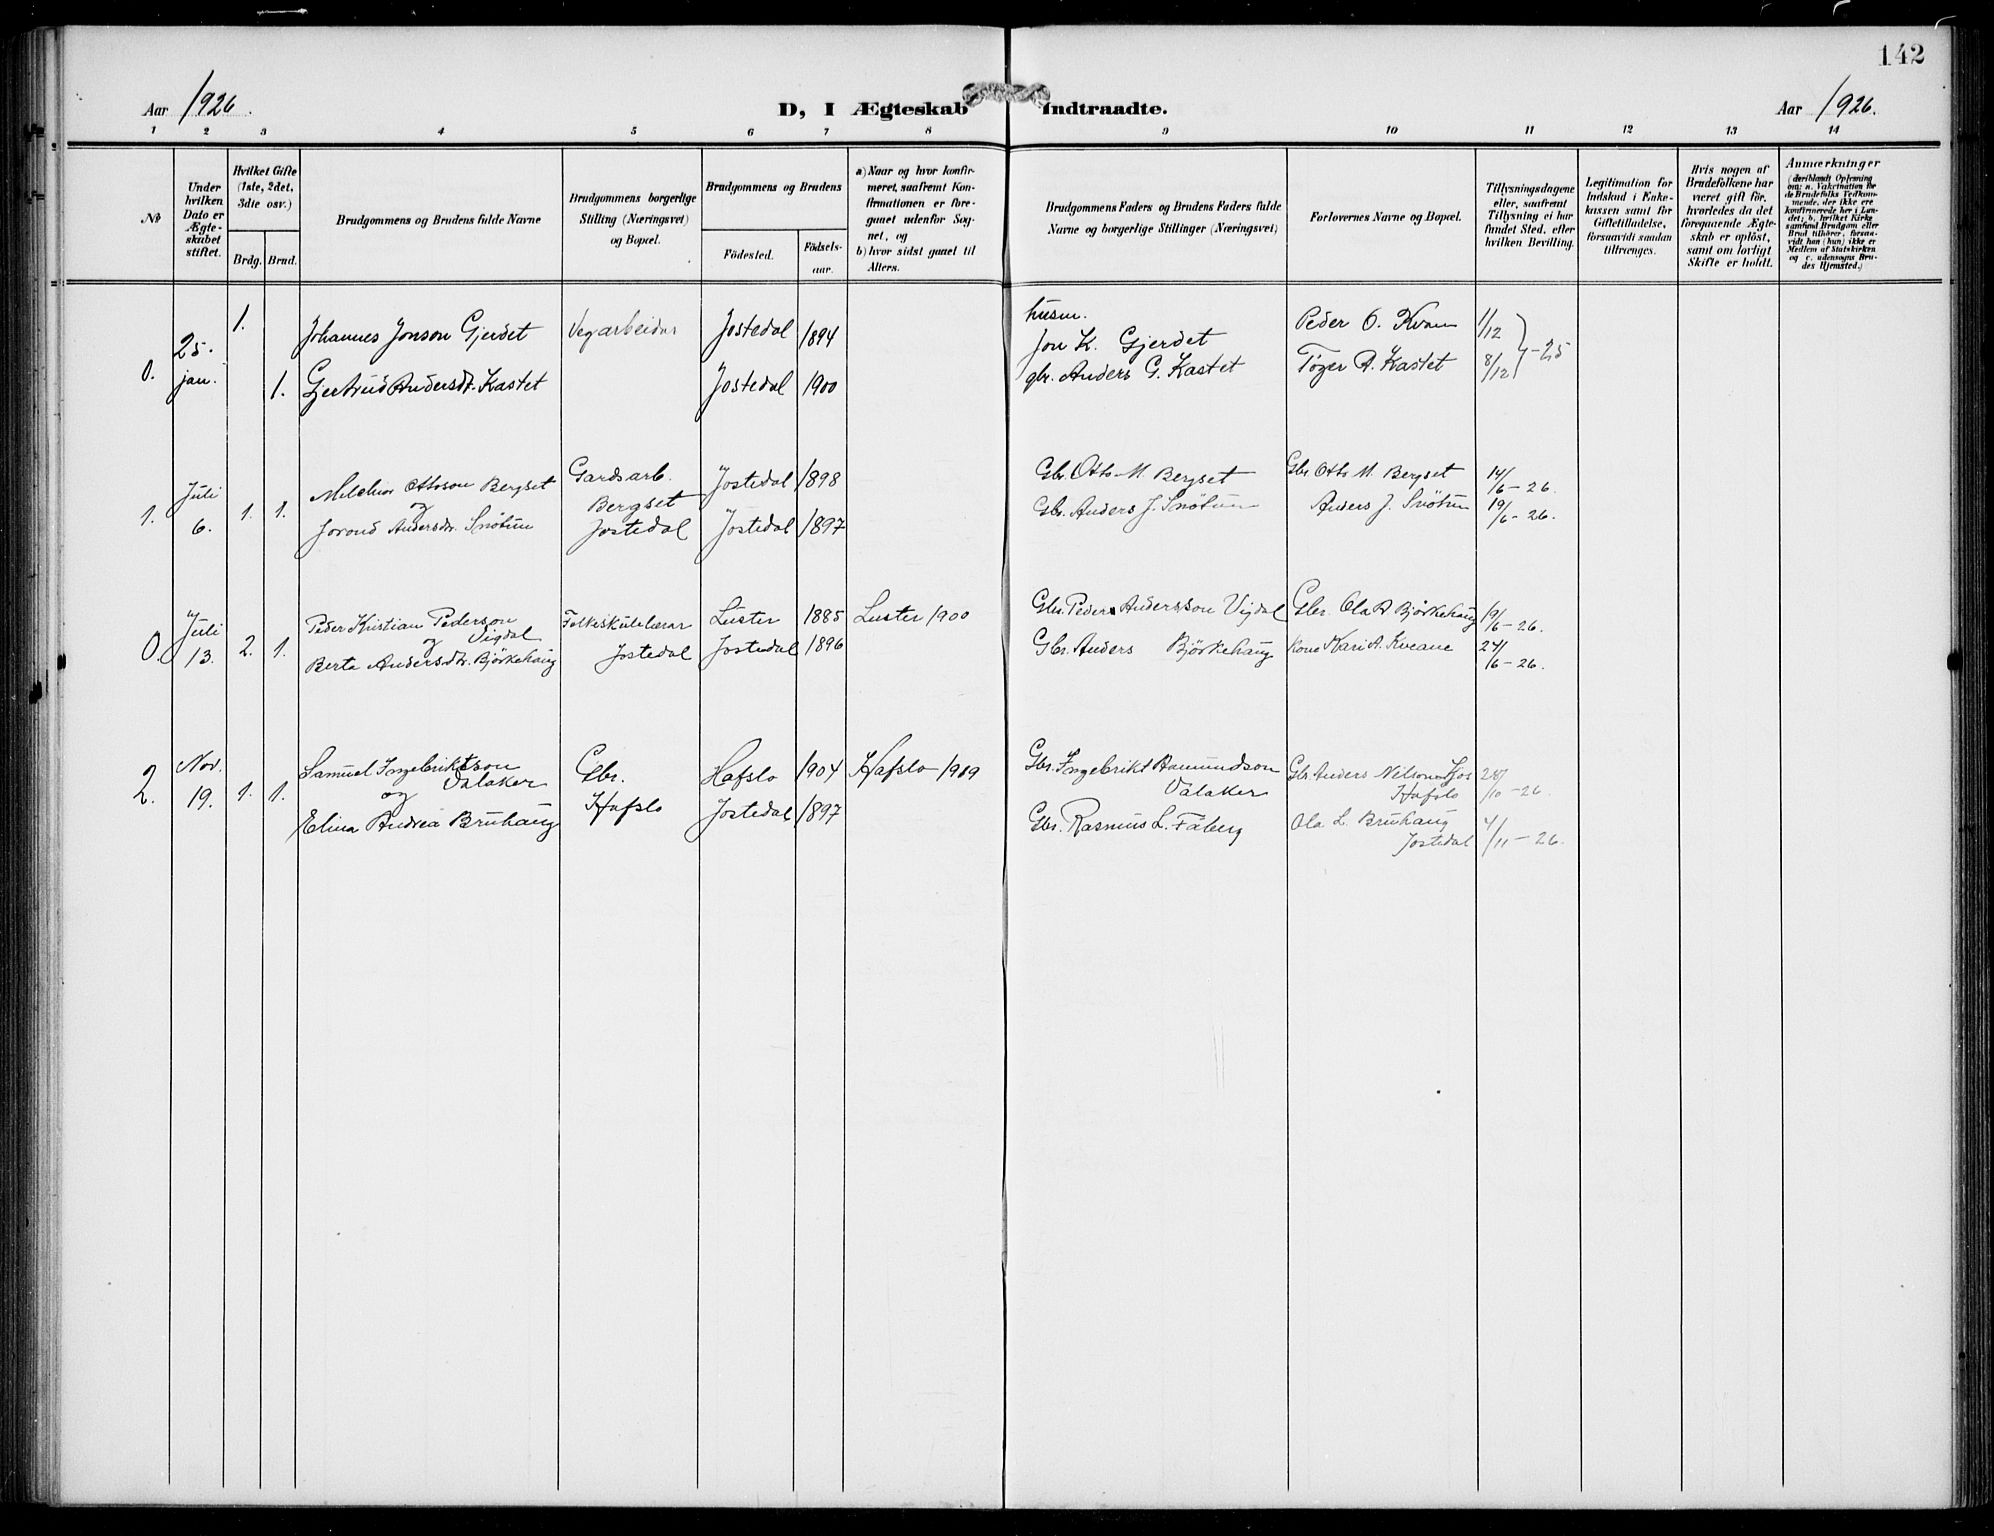 142
Aar 1926.
D, I Ægteskab Indtraadte.
Aar 1926.
1 2 3 4 5 6 7 8 9 10 11 12 13 14
No
Under hvilken Dato er Ægteskabet stiftet.
Hvilket Gifte (1ste, 2det, 3dte osv.)
Brdg. Brud.
Brudgommens og Brudens fulde Navne
Brudgommens borgerlige Stilling (Næringsvei) og Bopæl.
Brudgommens og Brudens
Födested.
Födsels-aar.
a) Naar og hvor konfirmeret, saafremt Konfirmationen er foregaaet udenfor Sognet, og
b) hvor sidst gaaet til Alters.
Brudgommens Faders og Brudens Faders fulde Navne og borgerlige Stillinger (Næringsvei)
Forlovernes Navne og Bopæl.
Tillysningsdagene eller, saafremt Tillysning ei har fundet Sted, efter hvilken Bevilling.
Legitimation for Indskud i Enkekassen samt for Giftetilladelse, forsaavidt saadan tiltrænges.
Hvis nogen af Brudefolkene har været gift før, hvorledes da det foregaaende Ægteskab er opløst, samt om lovligt Skifte er holdt.
Anmærkninger
(deriblandt Oplysning om: a. Vakcination for de Brudefolks Vedkommende, der ikke ere konfirmerede her i Landet; b. hvilket Kirkesamfund Brudgom eller Brud tilhører, forsaavidt han (hun) ikke er Medlem af Statskirken og c. udensogns Brudes Hjemsted.)
0. 25. jan. 1.
Johannes Jonson Gjerdet Vegarbeidar Jostedal 1894
husm.
Jon K. Gjerdet Peder O. Kvam 11/12
1. Gjertrud Andersdt. Kastet Jostedal 1900
gbr. Anders G. Kastet Tøger A. Kastet 8/12 -25
1. Juli 6. 1. 1.
Melchior Ottoson Bergset
og
Jorond Andersdtr. Snøtun
Gardsarb.
Bergset
Jostedal
Jostedal 1898
Jostedal 1897
Gbr. Otto M. Bergset Gbr. Otto M. Bergset 14/6-26.
Gbr. Anders J. Snøtun Anders J. Snøtun 19/6-26.
0. Juli 13. 2. 1.
Peder Kristian Pederson
og Vigdal
Berta Andersdtr. Björkehaug
Folkeskulelærar
Jostedal
Luster 1885 Luster 1900
Jostedal 1896
Gbr. Peder Andersson Vigdal Gbr. Ola A Bjørkehaug 19/6-26.
Gbr. Anders Björkehaug Kone Kari A. Kveane 24/6-26.
2. Nov. 19. 1. 1.
Samuel Ingebriktson
og Valaker
Elina Andrea Bruhaug
Gbr.
Hafslo
Hafslo 1904 Hafslo 1919
Jostedal 1897
Gbr. Ingebrikt Hamundson
Valaker
Gbr. Rasmus L. Fåberg
Gbr. Anders Nilson Kjos
Hafslo
28/10-26.
Ola L. Bruhaug
Jostedal
4/11-26.